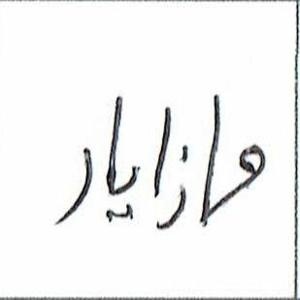 مازایار